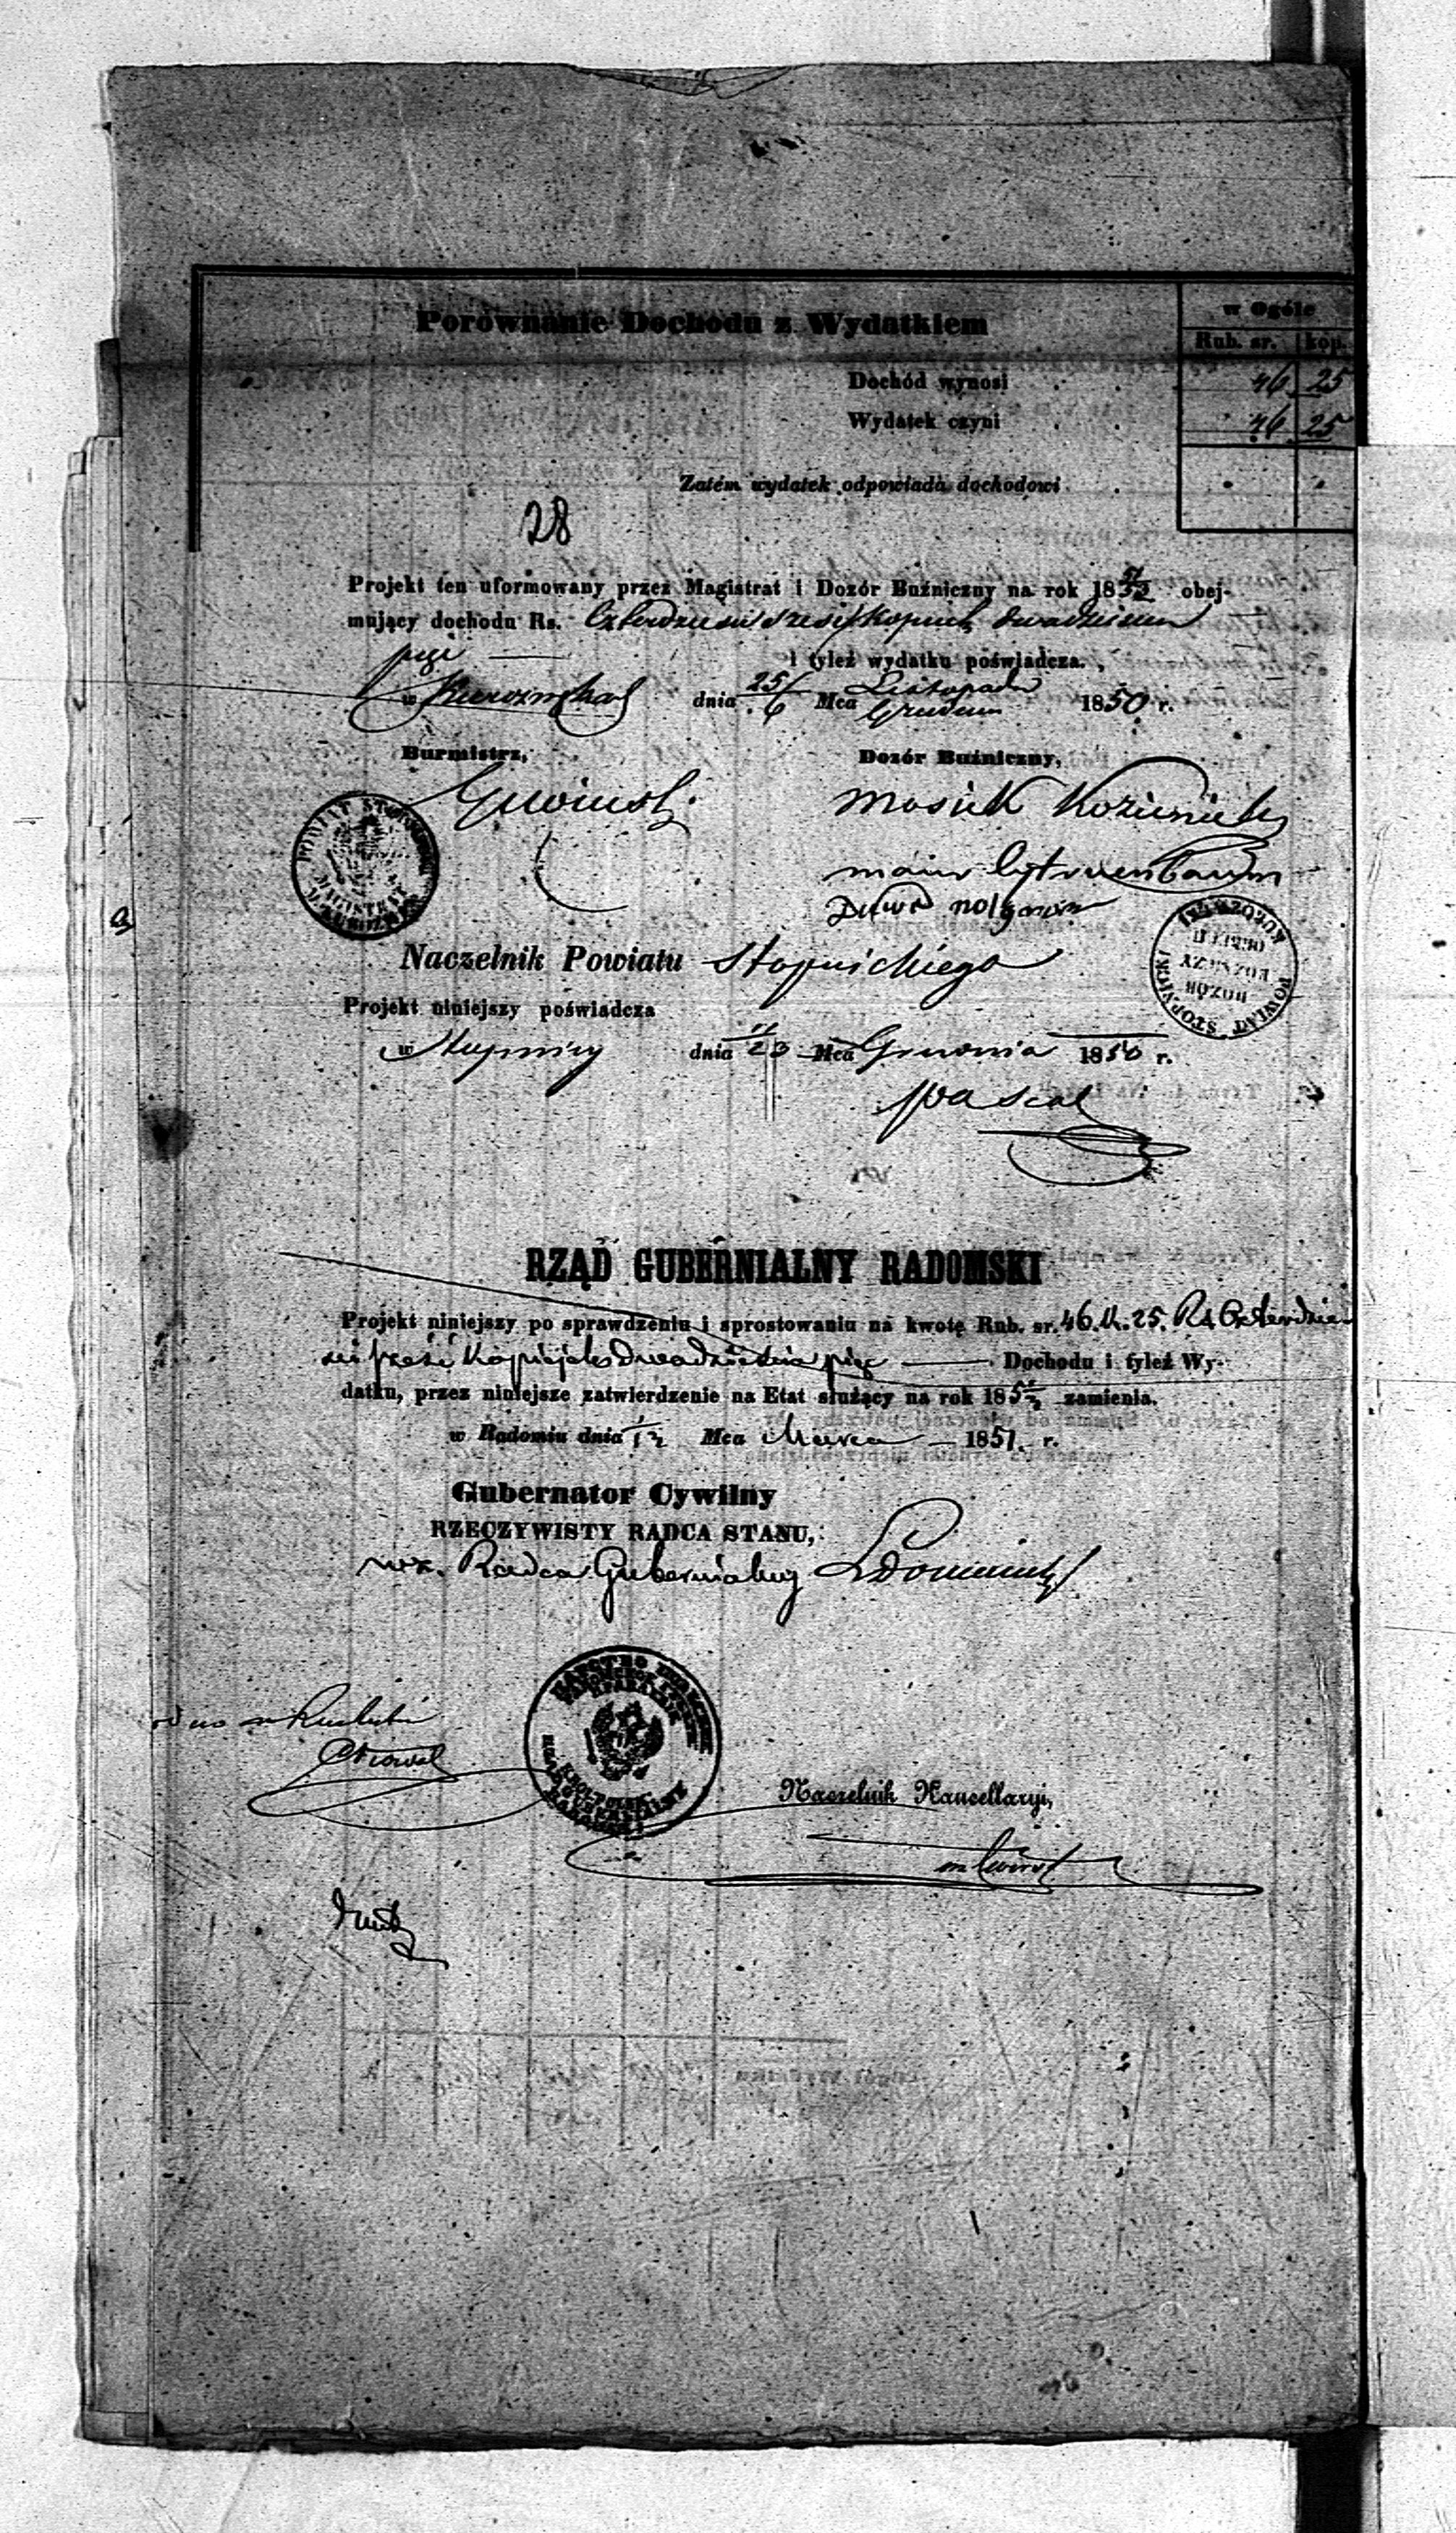 Porównanie Dochodu z Wydatkiem
w Ogóle
Rub. sr. kop.
Dochód wynosi 46 25
Wydatek czyni 46 25
Zatém wydatek odpowiada dochodowi
28
Projekt ten uformowany przez Magistrat i Dozór Buźniczny na rok 18 51/53 obej-
mujący dochodu Rs. Czterdzieści sześć Kopiejek dwadzieścia
pięć i tyleż wydatku poświadcza.
w dnia 25/6 Mca Listopada/Grudnia 1850 r.
Burmistrz, Dozór Buźniczny,
Mosiek
POWIAT
MAGISTRAT
Dawid
Naczelnik Powiatu Stopnickiego
DOZÓR
POWIAT STOPNICKI
Projekt niniejszy poświadcza
w Stopnicy dnia 11/23 Mca Grudnia 1850 r.
RZĄD GUBERNIALNY RADOMSKI
Projekt niniejszy po sprawdzeniu i sprostowaniu na kwotę Rub. sr. 46. k. 25. Rs Czterdzie
ści sześć Kopiejek dwadzieścia pięć Dochodu i tyleż Wy-
datku, przez niniejsze zatwierdzenie na Etat służący na rok 185 zamienia.
w Radomiu dnia 1/13 Mca Marca 1851. r.
Gubernator Cywilny
RZECZYWISTY RADCA STANU,
wz. Radca Gubernialny
Naczelnik Kancellaryi,